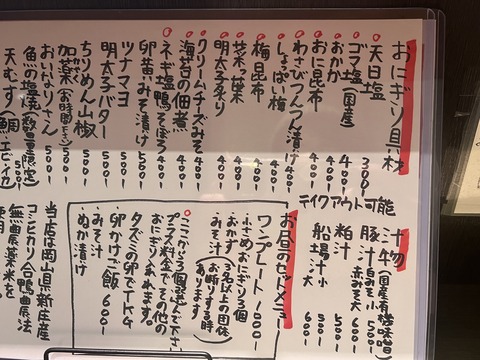 おにぎり具材
天日塩 300
ゴマ塩(国産) 400
おかか 400
おに昆布 400
わさびつんつん漬け 400
しょっぱい梅 400
梅昆布 400
菜っ葉 400
明太子炙り 400
クリームチーズみそ 400
海苔の佃煮 400
ネギ塩鴨そぼろ 400
卵黄みそ漬け 500
ツナマヨ 500
明太子バター 500
ちりめん山椒 500
加薬(お時間下さい) 500
おいなりさん 500
魚の塩焼(数量限定) 500
天むす
テイクアウト可能
汁物(国産有機味噌)
豚汁 白みそ小 500
赤みそ大 600
粕汁 小 500
大 600
船場汁 小 500
大 600
お昼のセットメニュー
ワンプレート 1000
・小さめおにぎり3個
・おかず
・みそ汁
(3名以上の団体お断りする時あります)
ここから3個選んで下さい
プラス料金でその他のおにぎりも作れます。
タズミの卵でTKG
卵かけご飯 600
・みそ汁
・ぬか漬け
当店は岡山県新庄産
コシヒカリ合鴨農法
無農薬米を
使用